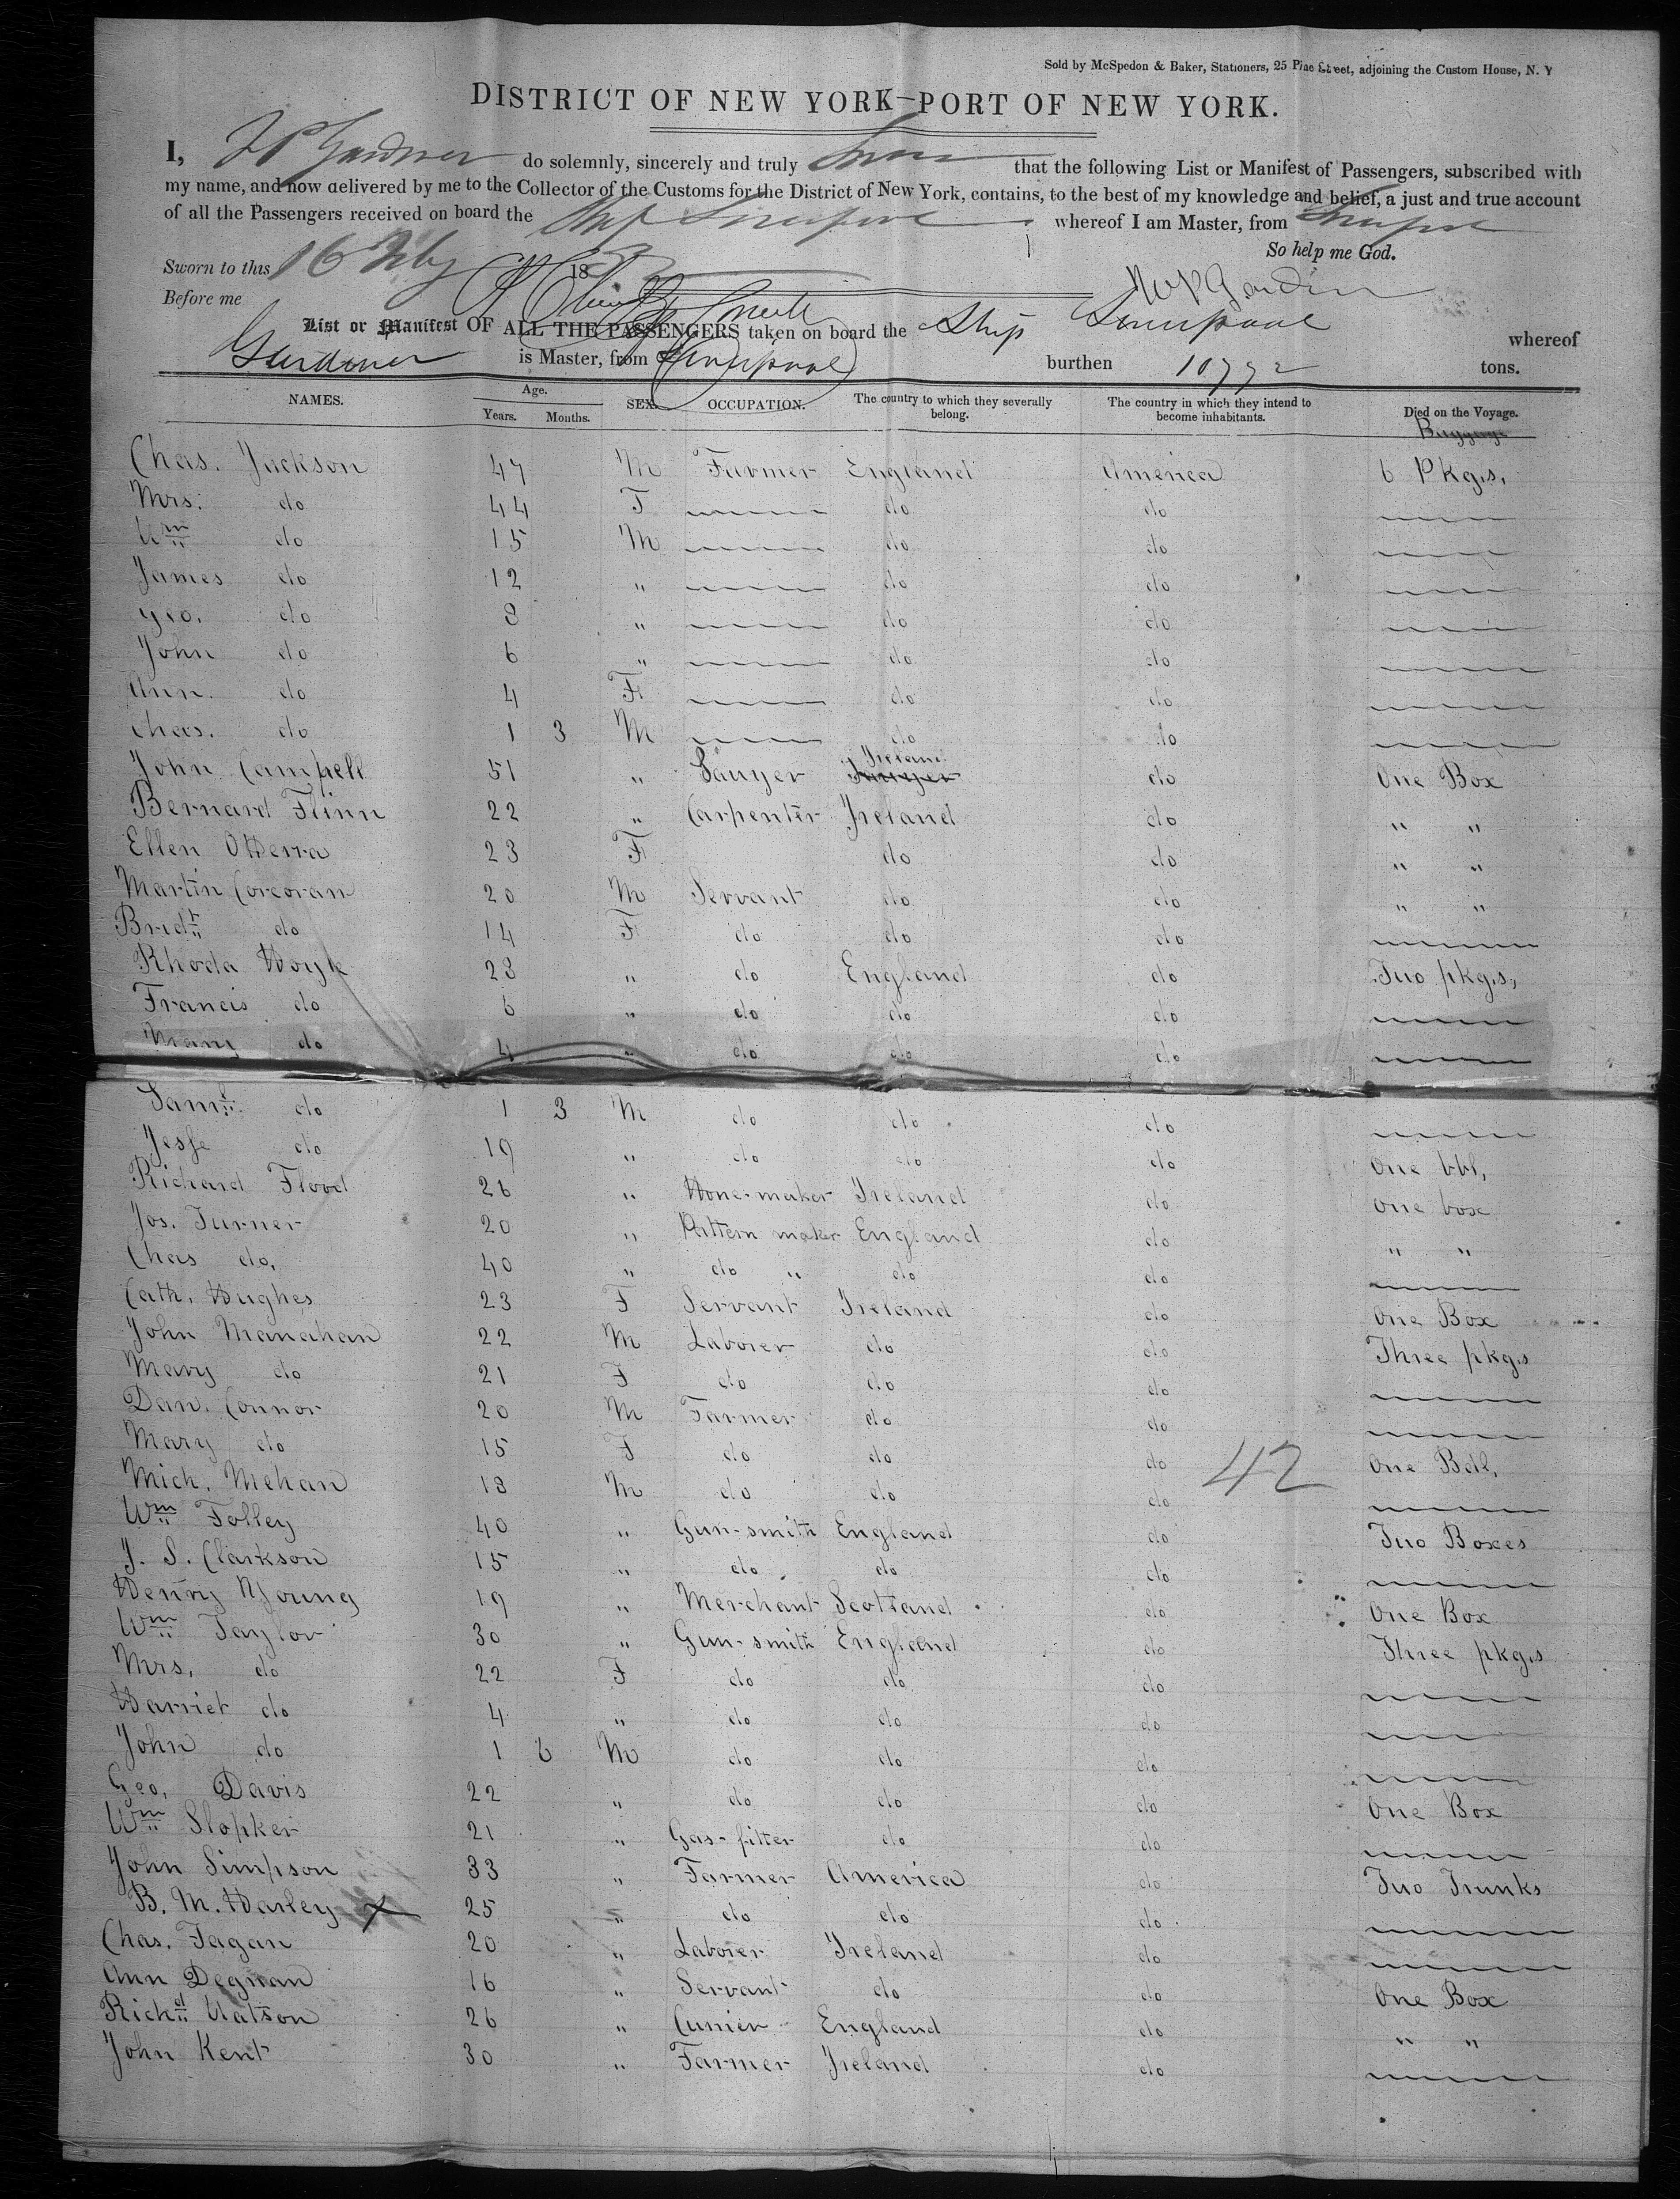 Sold by McSpedon & Baker, Stationers, 25 Pine Street, adjoining the Custom House, N. Y
DISTRICT OF NEW YORK—PORT OF NEW YORK.
I, Gardner do solemnly, sincerely and truly Swear that the following List or Manifest of Passengers, subscribed with
my name, and now delivered by me to the Collector of the Customs for the District of New York, contains, to the best of my knowledge and belief, a just and true account
of all the Passengers received on board the Ship Liverpool whereof I am Master, from Liverpool
So help me God.
Sworn to this 16 18
Before me
List or Manifest OF ALL THE PASSENGERS taken on board the Ship Liverpool whereof
Gardner is Master, from Liverpool burthen tons.
NAMES. Age. Years. Months. SEX. OCCUPATION. The country to which they severally belong. The country in which they intend to become inhabitants. Died on the Voyage.
Baggage
Chas. Jackson 47 M Farmer England America 6 Pkgs,
Mrs: do 44 F do do
Wm do 15 M do do
James do 12 " do do
Geo. do 8 " do do
John do 6 " do do
Ann. do 4 F do do
Chas. do 1 3 M do do
John Campell 51 " Sawyer Ireland do One Box
Bernard Flinn 22 " Carpenter Ireland do " "
Ellen OHerra 23 F do do " "
Martin Corcoran 20 M Servant do do " "
Bridt do 14 F do do do
Rhoda Hoyle 28 " do England do Two pkgs,
Francis do 6 " do do do
Mary do 4 " do do do
Saml do 1 3 M do do do
Jesse do 19 " do do do One bbl,
Richard Flood 26 " Hone-maker Ireland do One box
Jos. Turner 20 " Pattern maker England do " "
Chas do, 40 " do " do do
Cath. Hughes 23 F Servant Ireland do One Box
John Manahan 22 M Laborer do do Three pkgs
Mary do 21 F do do do
Dan. Connor 20 M Farmer do do
Mary do 15 F do do do One Bdl,
42
Mich. Mehan 18 M do do do
Wm Folley 40 " Gun-smith England do Two Boxes
J. S. Clarkson 15 " do do do
Henry Young 19 " Merchant Scotland do One Box
Wm Taylor 30 " Gun-smith England do Three pkgs
Mrs. do 22 F do do do
Harriet do 4 " do do do
John do 1 6 M do do do
Geo. Davis 22 " do do do One Box
Wm Slopker 21 " Gas-fitter do do
John Simpson 33 " Farmer America do Two Trunks
B. M. Harley X 25 " do do do
Chas. Fagan 20 " Laborer Ireland do
Ann Degnan 16 " Servant do do One Box
Richd Watson 26 " Currier England do " "
John Kent 30 " Farmer Ireland do